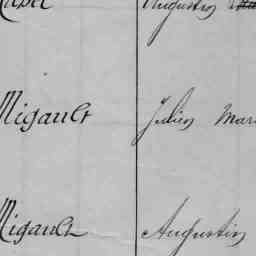 Augustin
Migault Julien Mari
Migault Augustin